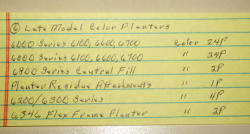 ⑥ Late Model Color Planters
6000 Series 6100, 6600, 6700 Color 24P
6000 Series 6100, 6600, 6700 " 24P
6900 Series Central Fill " 2P
Planter Residue Attachments " 1P
6200/6300 Series " 4P
6346 Flex Frame Planter " 2P